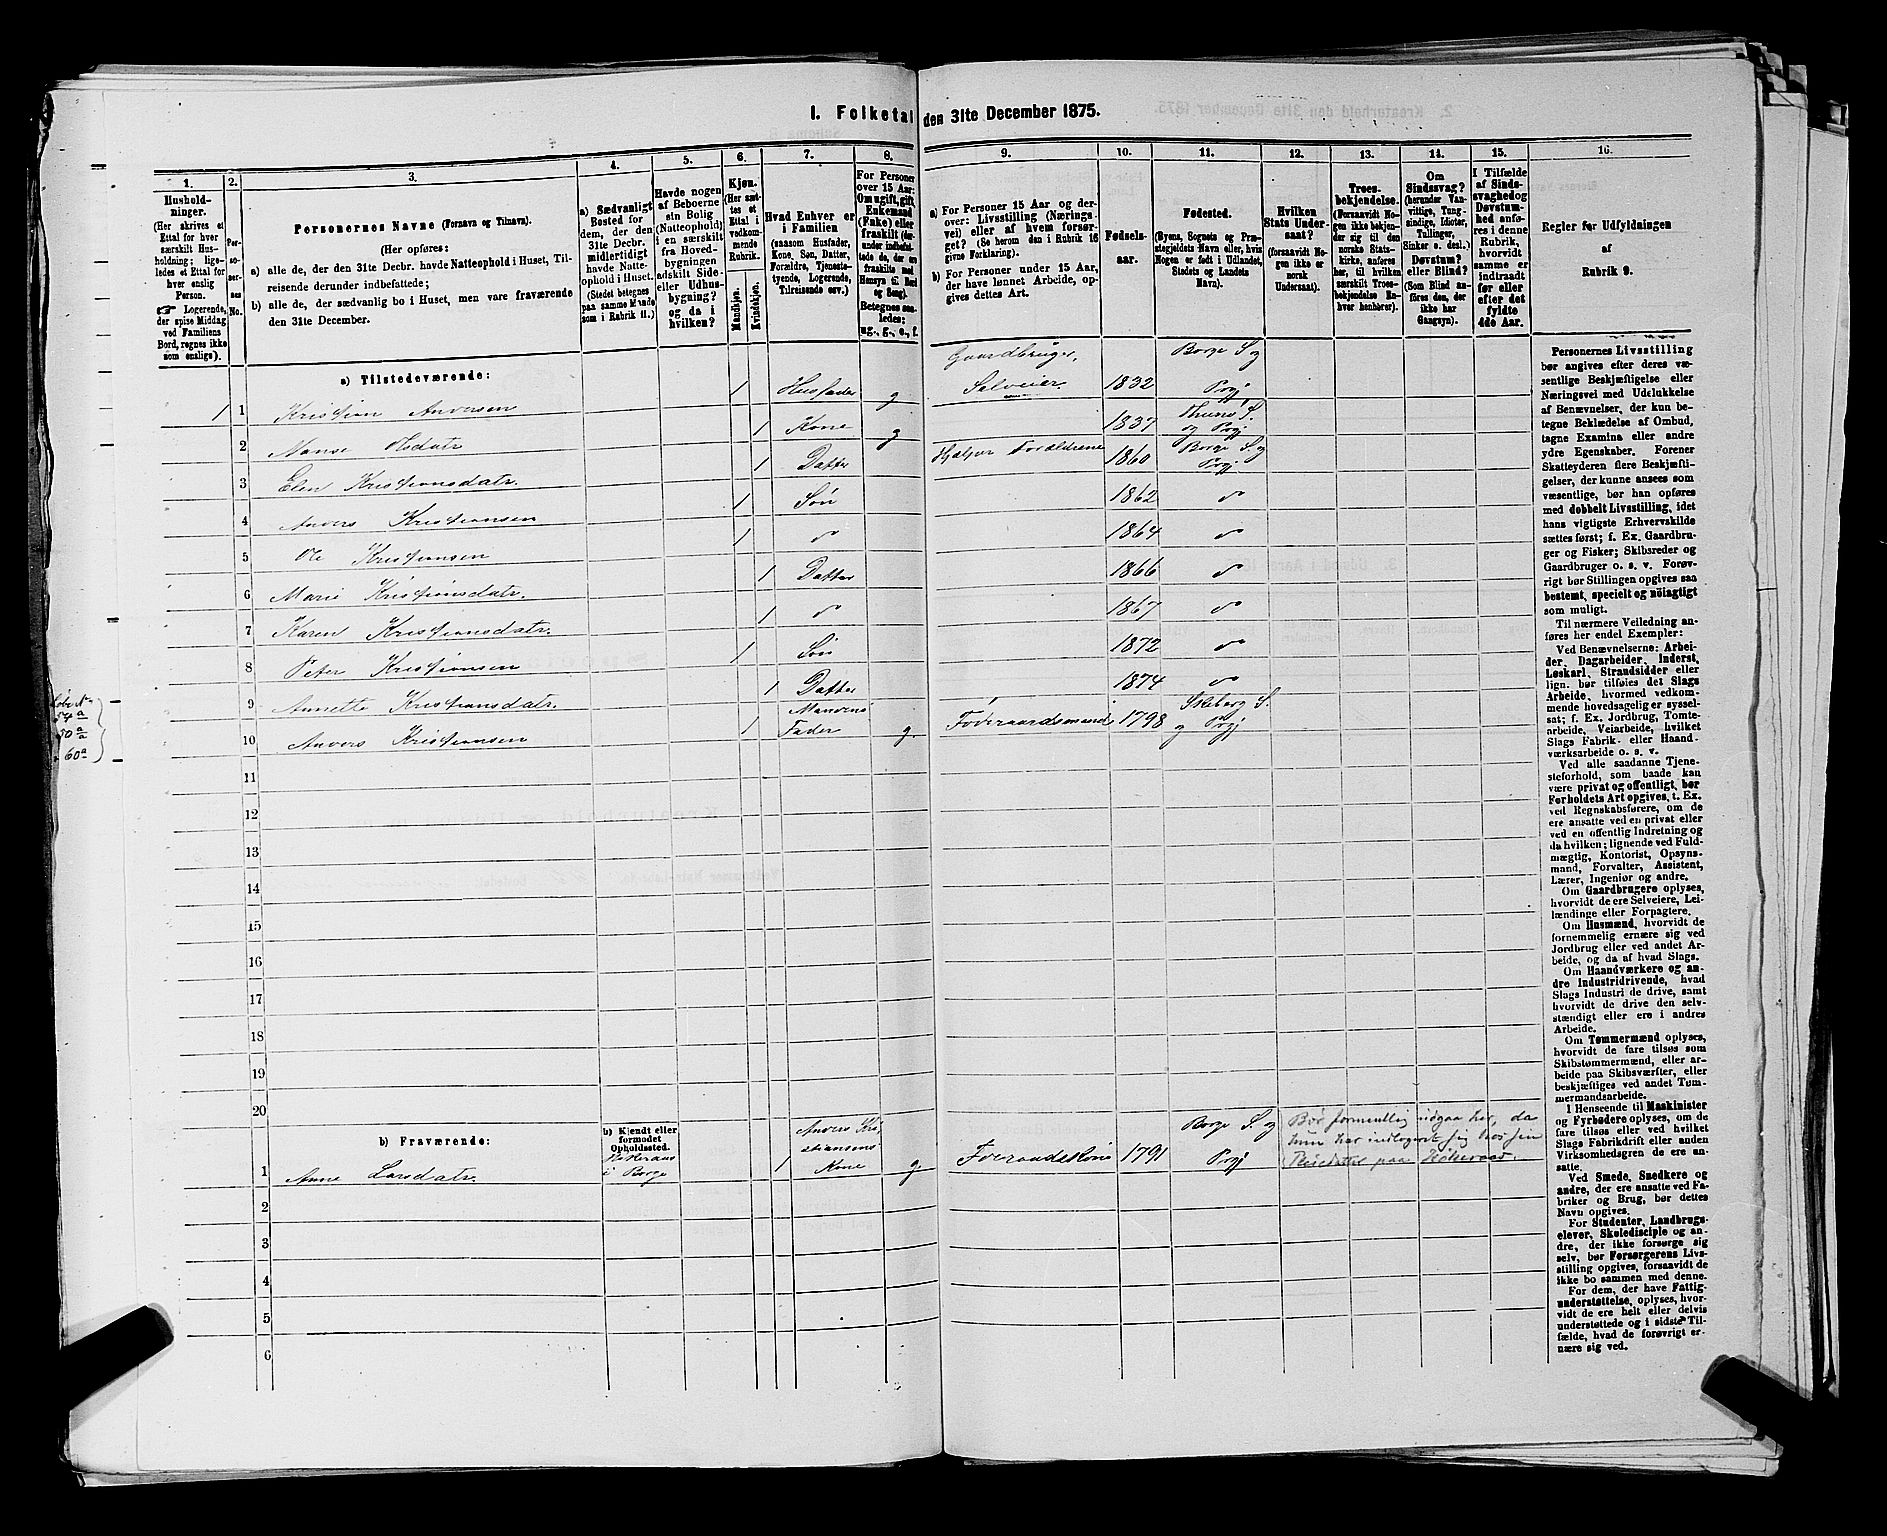 1. Folketal den 31te December 1875.
1.
Hushold-
ninger.
(Her skrives et
Ettal for hver
særskilt Hus-
holdning; lige-
ledes et Ettal for
hver enslig
Person.
☞ Logerende,
der spise Middag
ved Familiens
Bord, regnes ikke
som enslige).
2.
Per-
so-
ner-
nes
No.
3.
Personernes Navne (Fornavn og Tilnavn).
(Her opføres:
a) alle de, der den 31te Decbr. havde Natteophold i Huset, Til-
reisende derunder indbefattede;
b) alle de, der sædvanlig bo i Huset, men vare fraværende
den 31te December.
4.
a) Sædvanligt
Bosted for
dem, der den
31te Decbr.
midlertidigt
havde Natte-
ophold i Huset.
(Stedet betegnes
paa samme Maade
som i Rubrik 11.)
5.
Havde nogen
af Beboerne
sin Bolig
(Natteophold)
i en særskilt
fra Hoved-
bygningen
adskilt Side-
eller Udhus-
bygning?
og da i
hvilken?
6.
Kjøn.
(Her sæt-
tes et
Ettal i
vedkom-
mende
Rubrik.
Mandkjøn.
Kvindekjøn.
7.
Hvad Enhver er
i Familien
(saasom Husfader,
Kone, Søn, Datter,
Forældre, Tjeneste-
tyende, Logerende,
Tilreisende osv.)
8.
For Personer
over 15 Aar:
Om ugift, gift,
Enkemand
(Enke) eller
fraskilt (der-
under indbefat-
tede de, der ere
fraskilte med
Hensyn til Bord
og Seng).
Betegnes saa-
ledes:
ug., g., e., f.
9.
a) For Personer 15 Aar og der-
over: Livsstilling (Nærings-
vei) eller af hvem forsør-
get? (Se herom den i Rubrik 16
givne Forklaring).
b) For Personer under 15 Aar,
der have lønnet Arbeide, op-
gives dettes Art.
10.
Fødsels-
aar.
11.
Fødested.
(Byens, Sognets og Præ-
stegjeldets Navn eller, hvis
Nogen er født i Udlandet,
Stedets og Landets
Navn).
12.
Hvilken
Stats Under-
saat?
(forsaavidt No-
gen ikke er
norsk
Undersaat).
13.
Troes-
bekjendelse.
(Forsaavidt No-
gen ikke bekjen-
der sig til den
norske Stats-
kirke, anføres
her, til hvilken
særskilt Troes-
bekjendelse En-
hver henhører).
14.
Om
Sindssvag?
(herunder Van-
vittige, Tung-
sindige, Idioter,
Tullinger,
Sinker o. desl.)
Døvstum?
eller Blind?
(Som Blind an-
føres den, der
ikke har
Gangsyn).
15.
I Tilfælde
af Sinds-
svaghedog
Døvstum-
hed anfø-
res i denne
Rubrik,
hvorvidt
samme er
indtraadt
før eller
efter det
fyldte
4de Aar.
16.
Regler for Udfyldningen
af
Rubrik 9.
a) Tilstedeværende:
1 1 Kristian Andersen 1 Husfader g. Gaardbruger, Selveier 1832 Borge S. og Prgj
2 Nanse Olsdatr 1 Kone g 1837 Thunø S. og Prgj.
3 Elen Kristiansdatr. 1 Datter Hjelper Forældrene 1860 Borge S. og Prgj
4 Anders Kristiansen 1 Søn 1862 do
5 Ole Kristiansen 1 do 1864 do
6 Marie Kristiansdatr. 1 Datter 1866 do
7 Karen Kristiansdatr. 1 do 1867 do
8 Peter Kristiansen 1 Søn 1872 do
9 Annette Kristiansdatr. 1 Datter 1874 do
10 Anders Kristiansen 1 Mandens Fader g. Føderaadsmand 1798 Skeberg S. og Prgj
54a
50a
60a
11
12
13
14
15
16
17
18
19
20
b) Fraværende:
b) Kjendt eller
formodet
Opholdssted.
1 Anne Larsdatr. i Borge 1 Anders Kristiansens Kone g. Føderaadskone 1791 Borge S. og Prgj
Bør formentlig udgaa her, da
hun har indlogeret sig hos sin
paa
2
3
4
5
6
Personernes Livsstilling
bør angives efter deres væ-
sentlige Beskjæftigelse eller
Næringsvei med Udelukkelse
af Benævnelser, der kun be-
tegne Beklædelse af Ombud,
tagne Examina eller andre
ydre Egenskaber. Forener
Skatteyderen flere Beskjæfti-
gelser, der kunne ansees som
væsentlige, bør han opføres
med dobbelt Livsstilling, idet
hans vigtigste Erhvervskilde
sættes først; f. Ex. Gaardbru-
ger og Fisker; Skibsreder og
Gaardbruger o. s. v. Forøv-
rigt bør Stillingen opgives saa
bestemt, specielt og nøiagtigt
som muligt.
Til nærmere Veiledning an-
føres her endel Exempler:
Ved Benævnelserne: Arbei-
der, Dagarbeider, Inderst,
Løskarl, Strandsidder eller
lign. bør tilføies det Slags
Arbeide, hvormed vedkom-
mende hovedsagelig er syssel-
sat; f. Ex. Jordbrug, Tomte-
arbeide, Veiarbeide, hvilket
Slags Fabrik- eller Haand-
værksarbeide o. s. v.
Ved alle saadanne Tjene-
steforhold, som baade kan
være privat og offentligt, bør
Forholdets Art opgives, t. Ex.
ved Regnskabsførere, om de
ere ansatte ved en privat eller
ved en offentlig Indretning og
da hvilken; lignende ved Fuld-
mægtig, Kontorist, Opsyns-
mand, Forvalter, Assistent,
Lærer, Ingeniør og andre.
Om Gaardbrugere oplyses,
hvorvidt de ere Selveiere, Lei-
lændinge eller Forpagtere.
Om Husmænd, hvorvidt de
fornemmelig ernære sig ved
Jordbrug eller ved andet Ar-
beide, og da af hvad Slags.
Om Haandværkere og an-
dre Industridrivende, hvad
Slags Industri de drive, samt
hvorvidt de drive den selv-
stændigt eller ere i andres
Arbeide.
Om Tømmermænd oplyses,
hvorvidt de fare tilsøs som
Skibstømmermænd, eller ar-
beide paa Skibsværfter, eller
beskjæftiges ved andet Tøm-
mermandsarbeide.
I Henseende til Maskinister
og Fyrbødere oplyses, om de
fare tilsøs eller ved hvilket
Slags Fabrikdrift eller anden
Virksomhedsgren de ere an-
satte.
Ved Smede, Snedkere og
andre, der ere ansatte ved Fa-
briker og Brug, bør dettes
Navn opgives.
For Studenter, Landbrugs-
elever, Skoledisciple og an-
dre, der ikke forsørge sig
selv, bør Forsørgerens Livs-
stilling opgives, forsaavidt de
ikke bo sammen med denne.
For dem, der have Fattig-
understøttelse, oplyses, hvor-
vidt de ere helt eller delvis
understøttede og i sidste Til-
fælde, hvad de forøvrigt er-
nære sig ved.